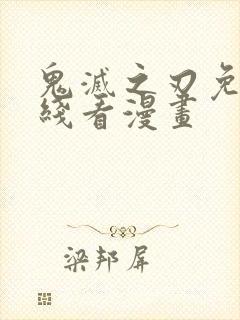 鬼滅之刃免
綫看漫畫
梁邦屏